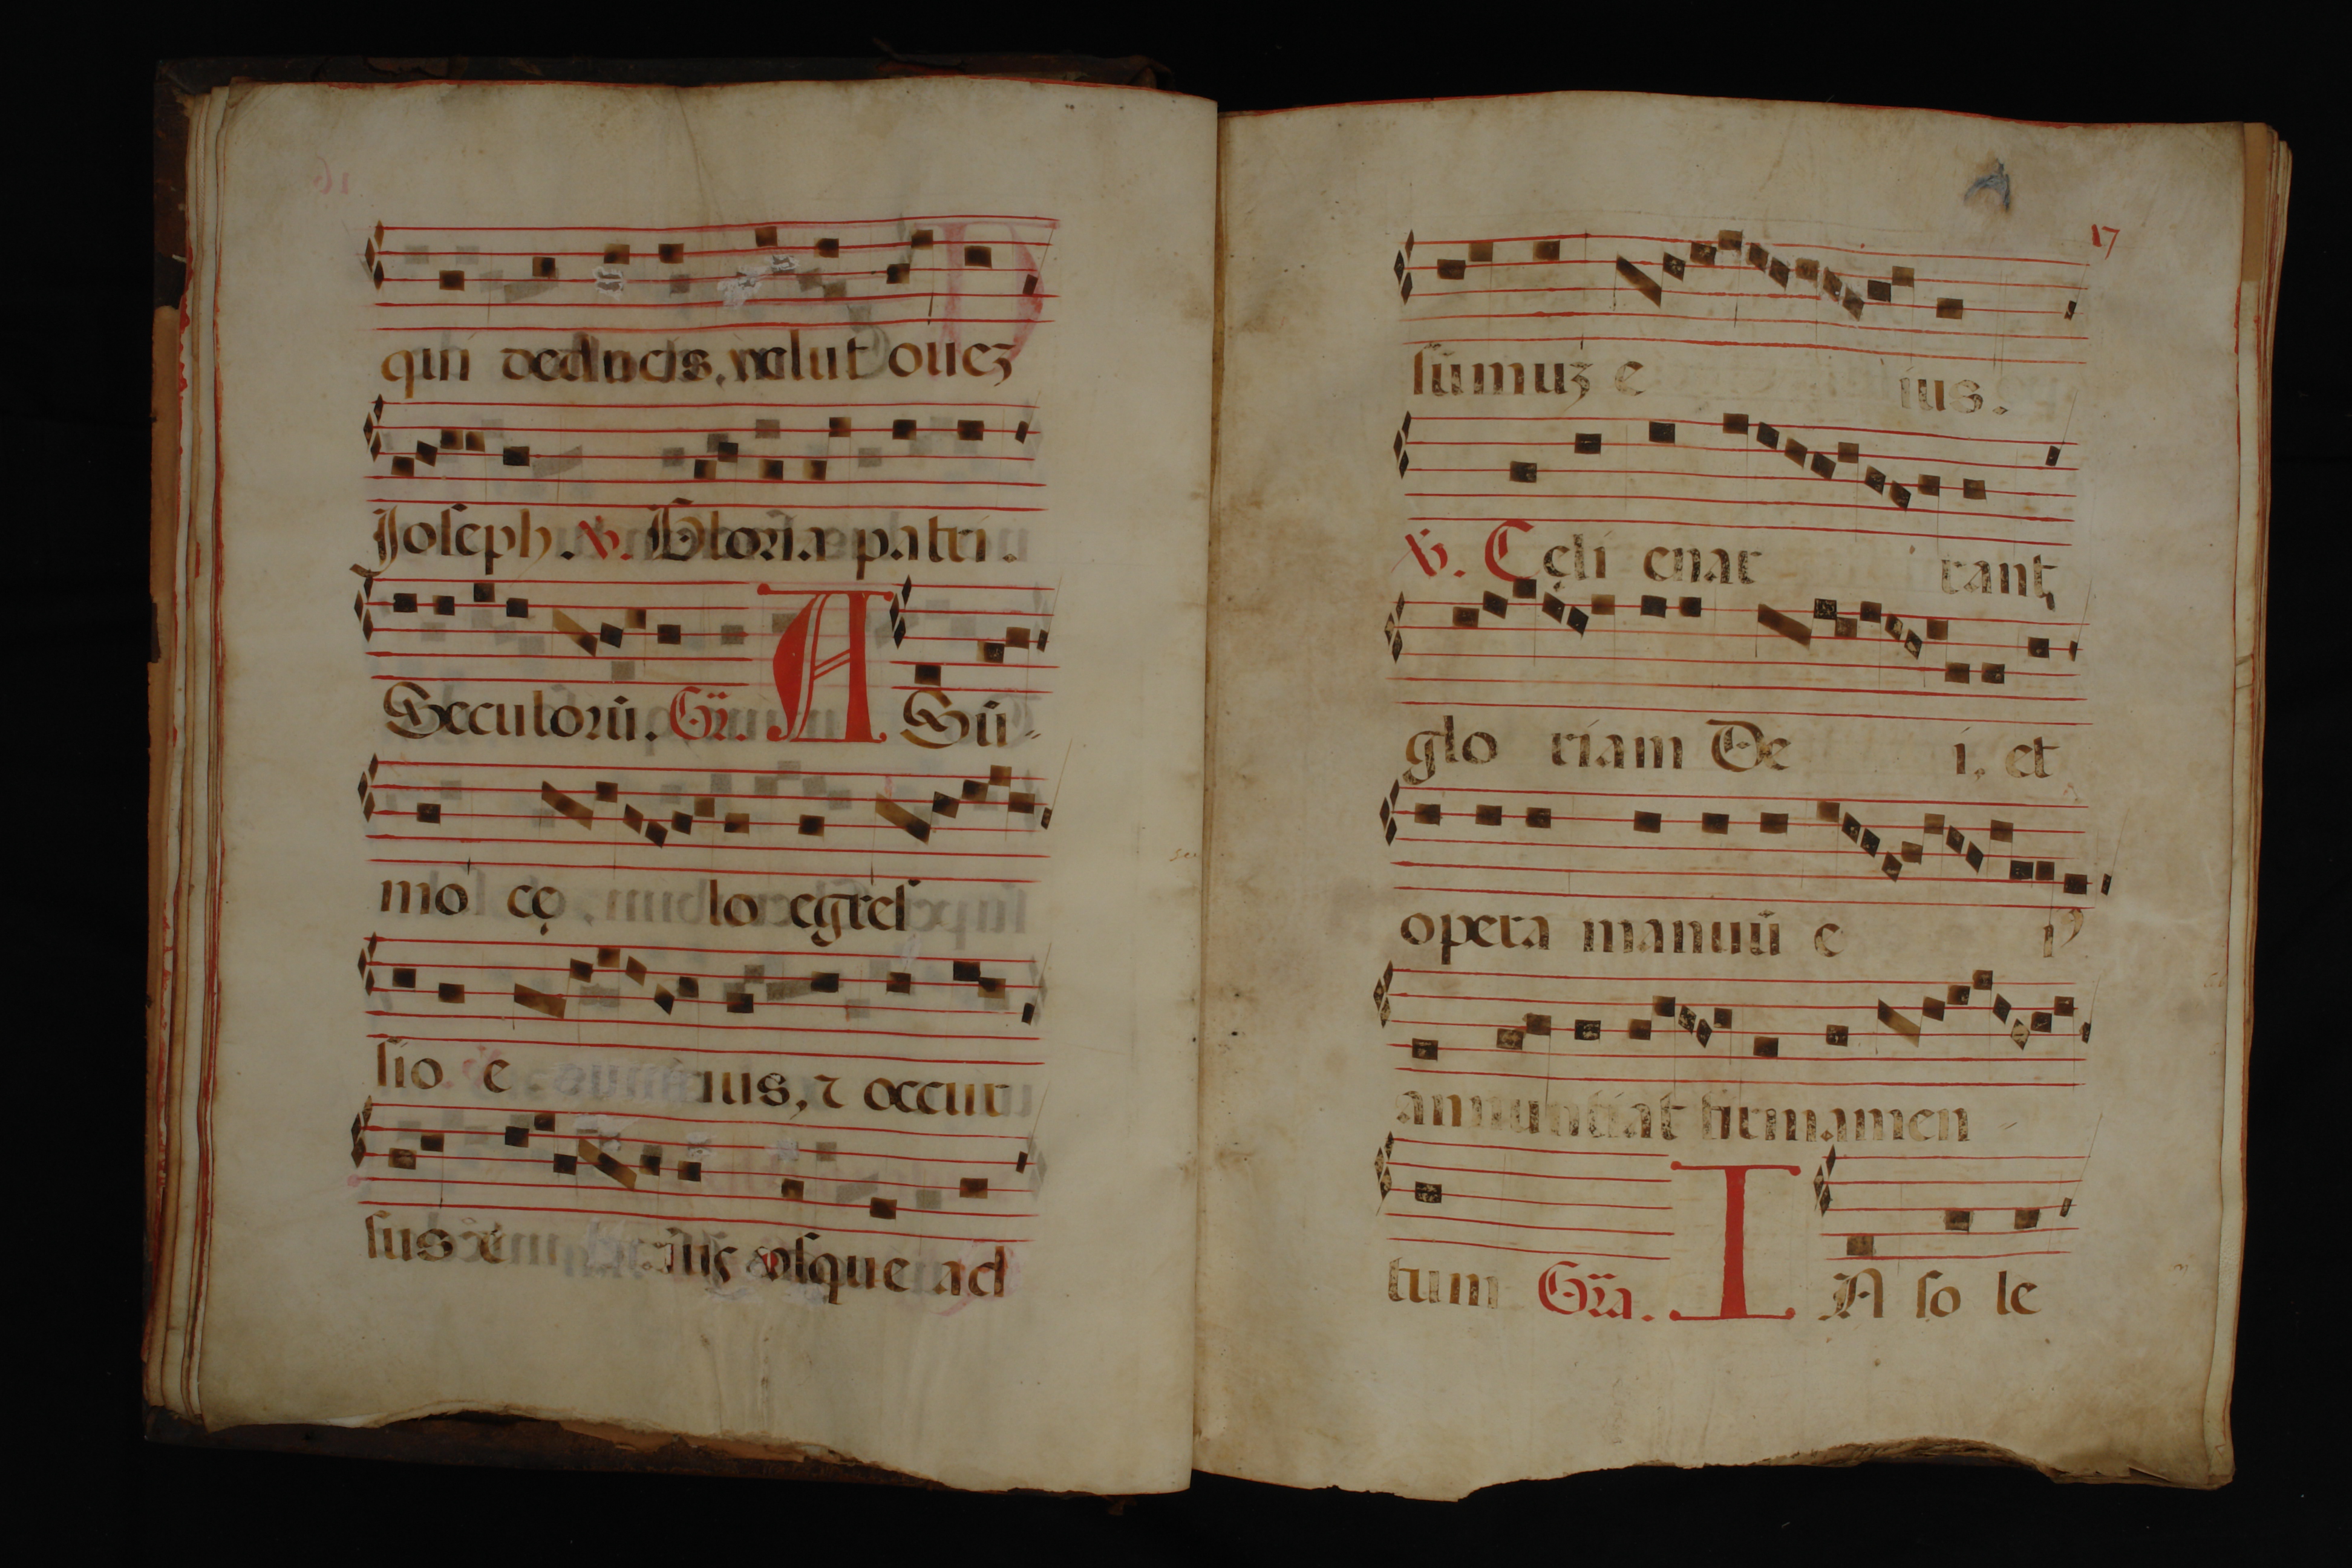 qui deducis, velut ouez
Joseph. ℣. Gloria patri.
Seculorū. Gr̈. A Sū-
mo cę lo egres
sio e ius, ⁊ occur
sus e ius vsque ad
17
sūmuz e ius.
℣. Cęli enar rant
glo riam De i, et
opera manuū e iꝰ
annuntiat firmamen
tum Gr̈a. I N so le